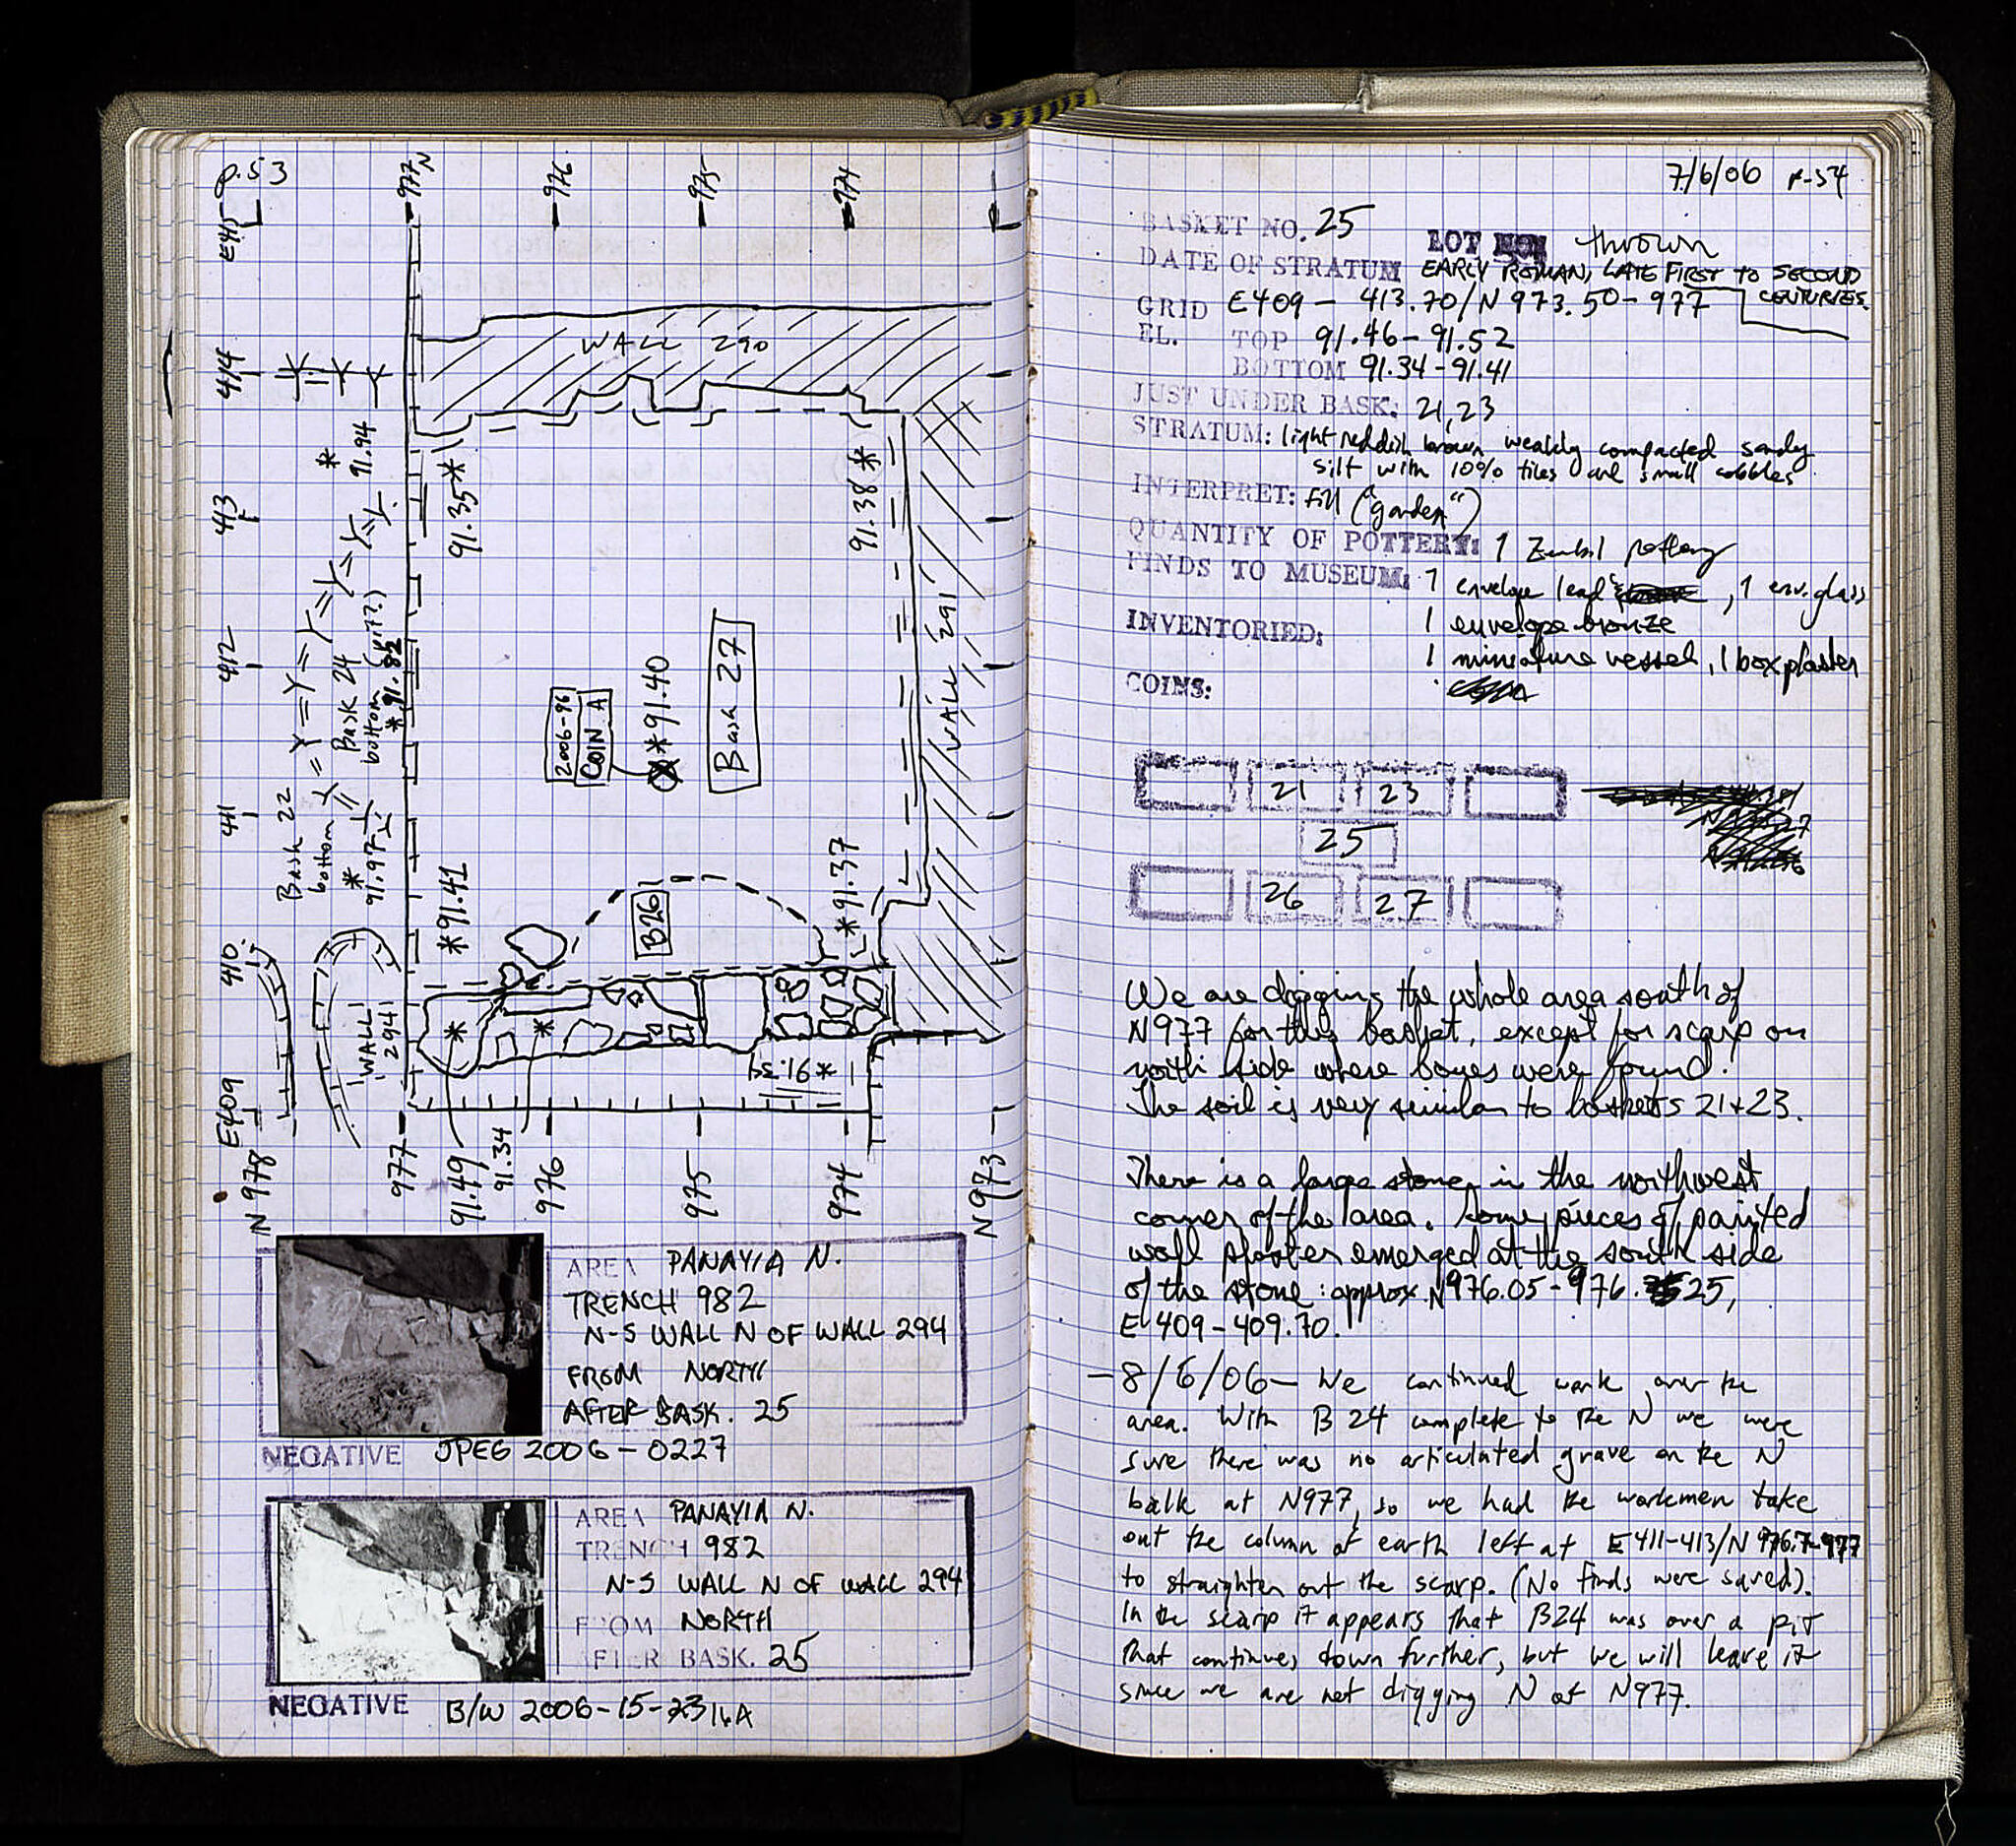 p.53
E415
977 N
976
975
974
WALL 290
414
* 91.94
91.35 *
91.38 *
413
412
Bask 24
bottom (pit?)
* 91.82
2006-96
COIN A
* 91.40
Bask 27
WALL 291
Bask 22
bottom
* 91.97
411
* 91.41
B26
* 91.37
410
WALL
294
E409
N 978
977
91.49
91.34
976
975
974
N 973
AREA PANAYIA N.
TRENCH 982
N-S WALL N OF WALL 294
FROM NORTH
AFTER BASK. 25
NEGATIVE JPEG 2006-0227
AREA PANAYIA N.
TRENCH 982
N-S WALL N OF WALL 294
FROM NORTH
AFTER BASK. 25
NEGATIVE B/W 2006-15-2316A
7/6/06 p-54
BASKET NO. 25
LOT thrown
DATE OF STRATUM EARLY ROMAN, LATE FIRST TO SECOND
CENTURIES.
GRID E409 - 413.70/N 973.50-977
EL. TOP 91.46-91.52
BOTTOM 91.34-91.41
JUST UNDER BASK: 21,23
STRATUM: light reddish brown weakly compacted sandy
silt with 10% tiles and small cobbles
INTERPRET: fill ("garden")
QUANTITY OF POTTERY: 1 Zembil pottery
FINDS TO MUSEUM: 1 envelope lead, 1 env. glass
1 envelope bronze
INVENTORIED:
1 miniature vessel, 1 box plaster
COINS:
21 23
25
26 27
We are digging the whole area south of
N977 for this basket, except for scarp on
north side where bones were found.
The soil is very similar to baskets 21+23.
There is a large stone in the northwest
corner of the area. Some pieces of painted
wall plaster emerged at the south side
of the stone: approx. N976.05-976.25,
E 409-409.70.
-8/6/06- We continued work over the
area. With B 24 complete to the N we were
sure there was no articulated grave on the N
balk at N977, so we had the workmen take
out the column of earth left at E411-413/N 976.7-977
to straighten out the scarp. (No finds were saved).
In the scarp it appears that B24 was over a pit
that continues down further, but we will leave it
since we are not digging N of N977.